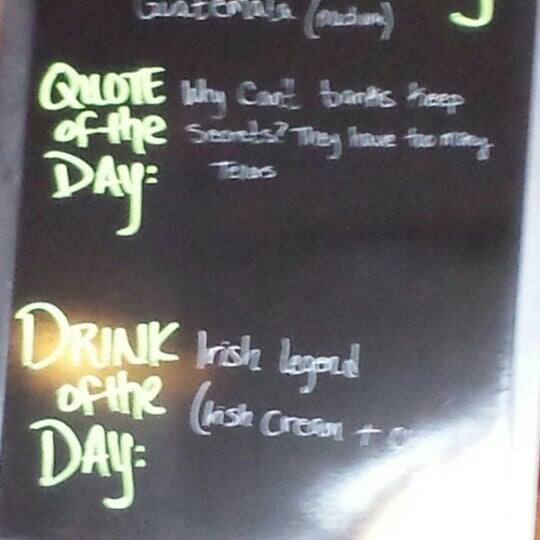 Guatemala (medium)
QUOTE of the DAY:
Why Can't banks keep
Secrets? They have too many
Tellers
DRINK of the DAY:
Irish legend
(Irish Cream +